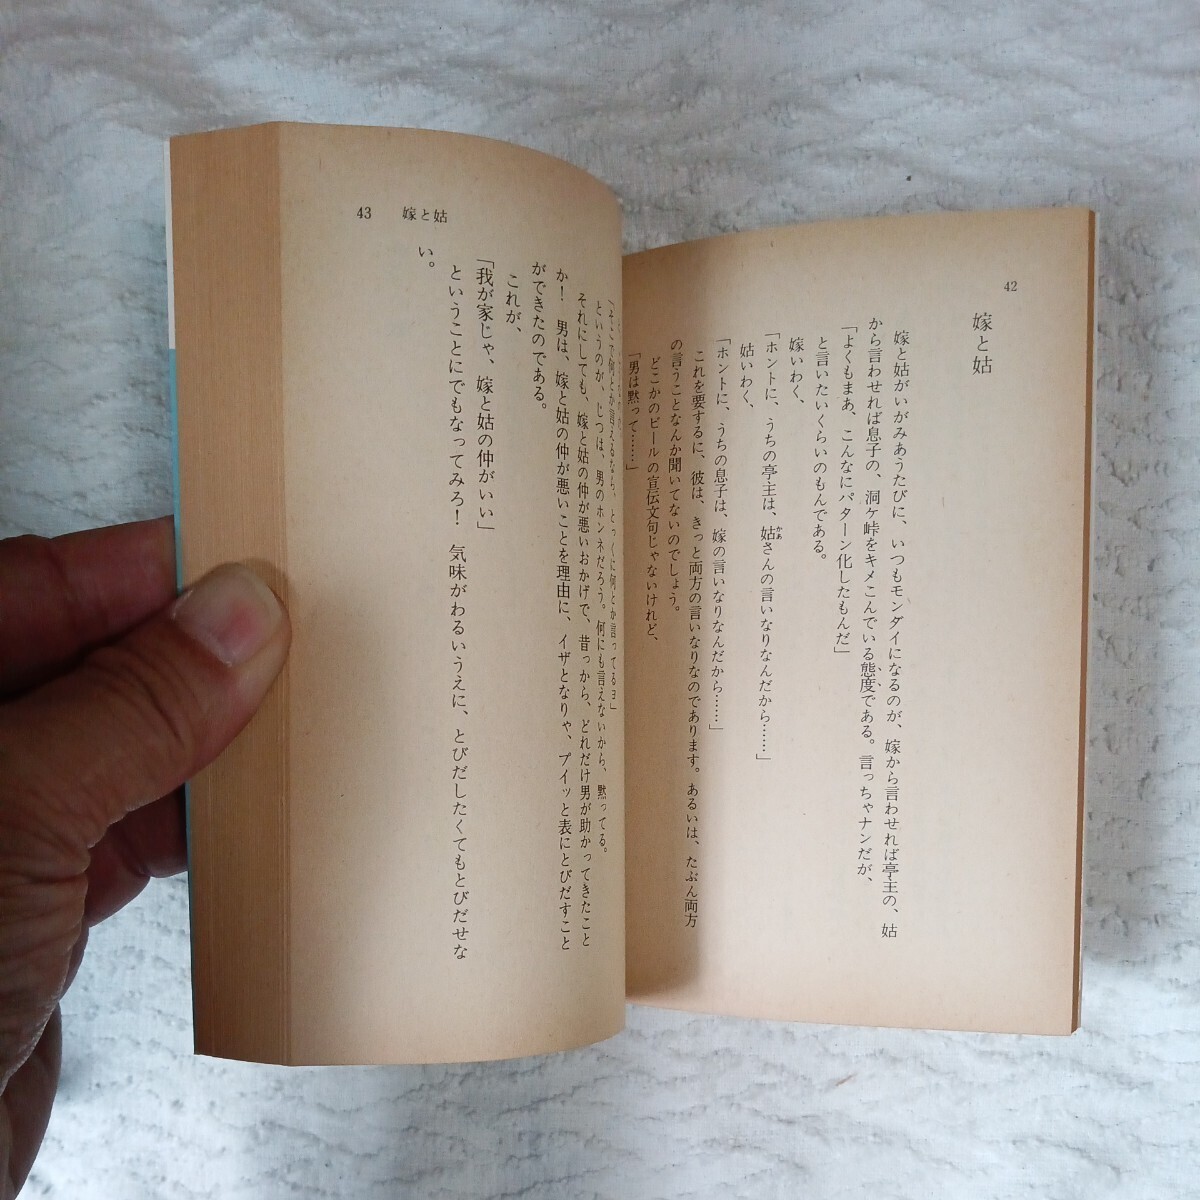 42
嫁と姑
嫁と姑がいがみあうたびに、いつもモンダイになるのが、嫁から言わせれば亭主の、姑
から言わせれば息子の、洞ケ峠をキメこんでいる態度である。言っちゃナンだが、
「よくもまあ、こんなにパターン化したもんだ」
と言いたいくらいのもんである。
嫁いわく、
「ホントに、うちの亭主は、姑さんの言いなりなんだから……」
姑いわく、
「ホントに、うちの息子は、嫁の言いなりなんだから……」
これを要するに、彼は、きっと両方の言いなりなのであります。あるいは、たぶん両方
の言うことなんか聞いてないのでしょう。
どこかのビールの宣伝文句じゃないけれど、
「男は黙って……」
43 嫁と姑
「そこで何とか言えるなら、とっくに何とか言ってるョ」
というのが、じつは、男のホンネだろう。何にも言えないから、黙ってる。
それにしても、嫁と姑の仲が悪いおかげで、昔っから、どれだけ男が助かってきたこと
か！ 男は、嫁と姑の仲が悪いことを理由に、イザとなりゃ、プイッと表にとびだすこと
ができたのである。
これが、
「我が家じゃ、嫁と姑の仲がいい」
ということにでもなってみろ！ 気味がわるいうえに、とびだしたくてもとびだせな
い。